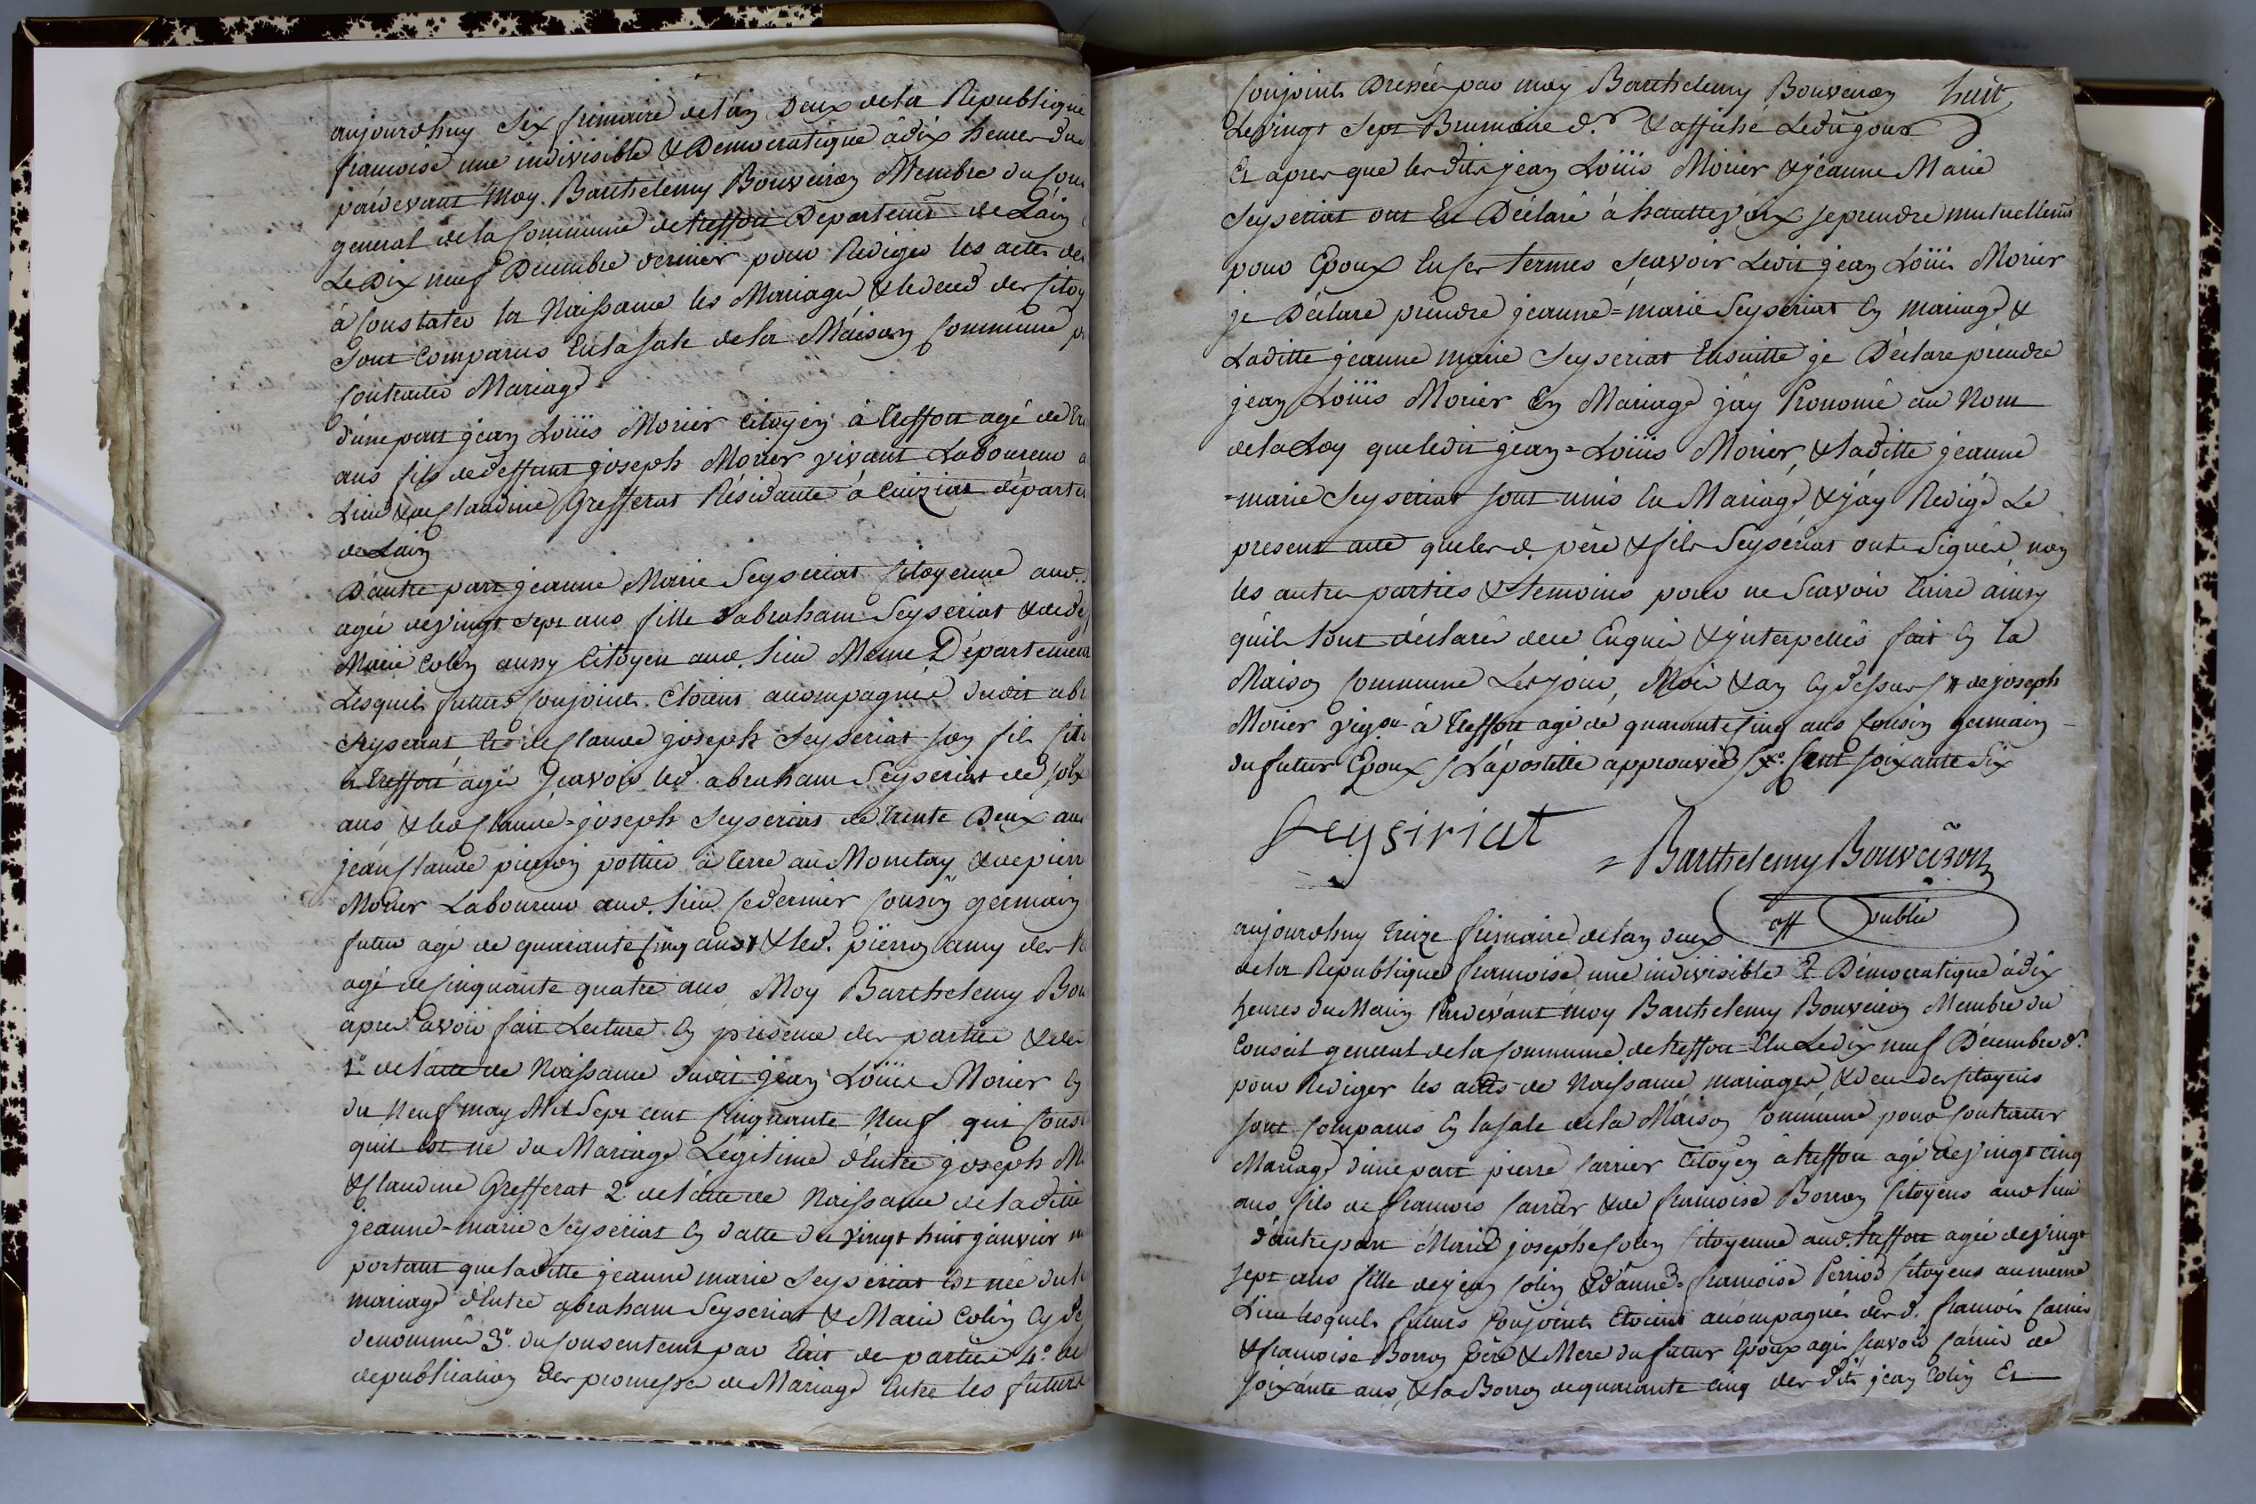 aujourdhuy six frimaire de l'an Deux de la Republique
francoise une indivisible & Democratique à dix heures du
pardevant moy Barthelemy Bouveiron Membre du Con
general de la Commune de treffort Departemt de Lain
Le Dix neuf Decembre dernier pour Rediger les actes de
à Constater la Naissance les Mariages & le deces des Citoy
sont Comparus En la sale de la Maison Commune p
Contracter Mariage
D'une part jean Loüis Morier Citoyen à treffort agé de tr
ans fils de deffunt joseph Morier vivant Laboureur a
Lieu & de Claudine Grefferat Résidante à Cuiziat départe
de Lain
D'autre part jeanne Marie Seyseriat Citoyenne aud.
agée de vingt sept ans fille d'abraham Seyseriat & de de
Marie Colin aussy Citoyen aud. Lieu Meme Département
Lesquels futurs Conjoints Etoient accompagnés dudit ab
Seyseriat & de Claude joseph Seyseriat son fils Cit
à treffort agé Scavoir led. abraham Seyseriat de soix
ans & led Claude=joseph Seyseriat de trente Deux ans
jean Claude pierron pottier à terre au Moncetay & de pierr
Morier Laboureur aud. Lieu Ce dernier Cousin germain
futur agé de quarante Cinq ans & led. pierron amy des
agé de Cinquante quatre ans Moy Barthelemy Bou
apres avoir fait Lecture En presence des parties & de
1.° de l'acte de Naissance dudit jean Loüis Morier En
du Neuf may Mil Sept cent Cinquante Neuf qui Cons
quil Est né du Mariage Légitime d'Entre joseph M
& Claudine Grefferat 2.° de l'acte de Naissance de laditte
jeanne=marie Seyseriat En datte du vingt huit janvier m
portant que laditte jeanne marie Seyseriat Est née du L
mariage d'Entre abraham Seyseriat & Marie Colin Cy de
denommés 3.° du Consentemt par Ecrit des parties 4.° de
de publication des promesses de Mariage Entre les futurs
Conjoints Dressée par moy Barthelemy Bouveiron huit
Le vingt Sept Brumaire d.r & affiche Le du jour
Et apres que les dits jean Loüis Morier & jeanne Marie
Seyseriat ont Eu Déclaré à hautte voix se prendre mutuellemt
pour Epoux En Ces termes Scavoir Ledit jean Loüis Morier
je Déclare prendre jeanne=marie Seyseriat En mariage &
Laditte jeanne marie Seyseriat Ensuitte je Déclare prendre
jean Loüis Morier En Mariage j'ay Prononcé au Nom
de la Loy que ledit jean=Loüis Morier, & laditte jeanne
=marie Seyseriat sont unis En Mariage, & j'ay Redigé Le
present acte que les d. père & fils Seyseriat ont Signés non
les autres parties & temoins pour ne Scavoir Ecrire ainsy
quils l'ont déclarés de ce Enquis & jnterpellés fait En la
Maison Commune Les jour, Mois & an Cy dessus // de joseph
Morier vigon à treffort agé de quarante Cinq ans Cousin germain
du futur Epoux / L'apostille approuvée Cent soixante Six
Seysiriat
= Barthelemy Bouveiron
off public
aujourdhuy treize frimaire de l'an deux
de la Republique francoise une indivisible Et Démocratique à dix
heures du Matin Pardevant moy Barthelemy Bouveiron Membre du
Conseil general de la Commune de treffort Elu Le dix neuf Décembre d.r
pour Rediger les actes de Naissance mariages & deces des Citoyens
sont Comparus En la sale de la Maison Commune pour Contracter
Mariage d'une part pierre Carrier Citoyen à treffort agé de vingt cinq
ans fils de francois Carrier & de francoise Borron Citoyens aud Lieu
d'autre part Marie josephe Colin Citoyenne aud. treffort agée de vingt
sept ans fille de jean Colin & d'anne=francoise Perriod Citoyens au meme
Lieu lesquels futurs Conjoints Etoient accompagnés des d. francois Carrier
& francoise Borron père & Mere du futur Epoux agés Scavoir Carrier de
soixante ans, & la Borron de quarante cinq des dits jean Colin Et